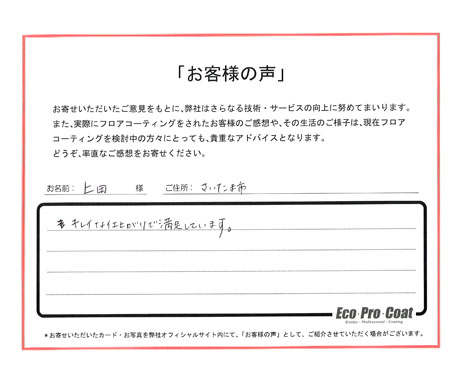 「お客様の声」
お寄せいただいたご意見をもとに、弊社はさらなる技術・サービスの向上に努めてまいります。
また、実際にフロアコーティングをされたお客様のご感想や、その生活のご様子は、現在フロア
コーティングを検討中の方々にとっても、貴重なアドバイスとなります。
どうぞ、率直なご感想をお寄せください。
お名前： 上田 様 ご住所： さいたま市
キレイな仕上がりで満足しています。
Eco・Pro・Coat
＊お寄せいただいたカード・お写真を弊社オフィシャルサイト内にて、「お客様の声」として、ご紹介させていただく場合がございます。